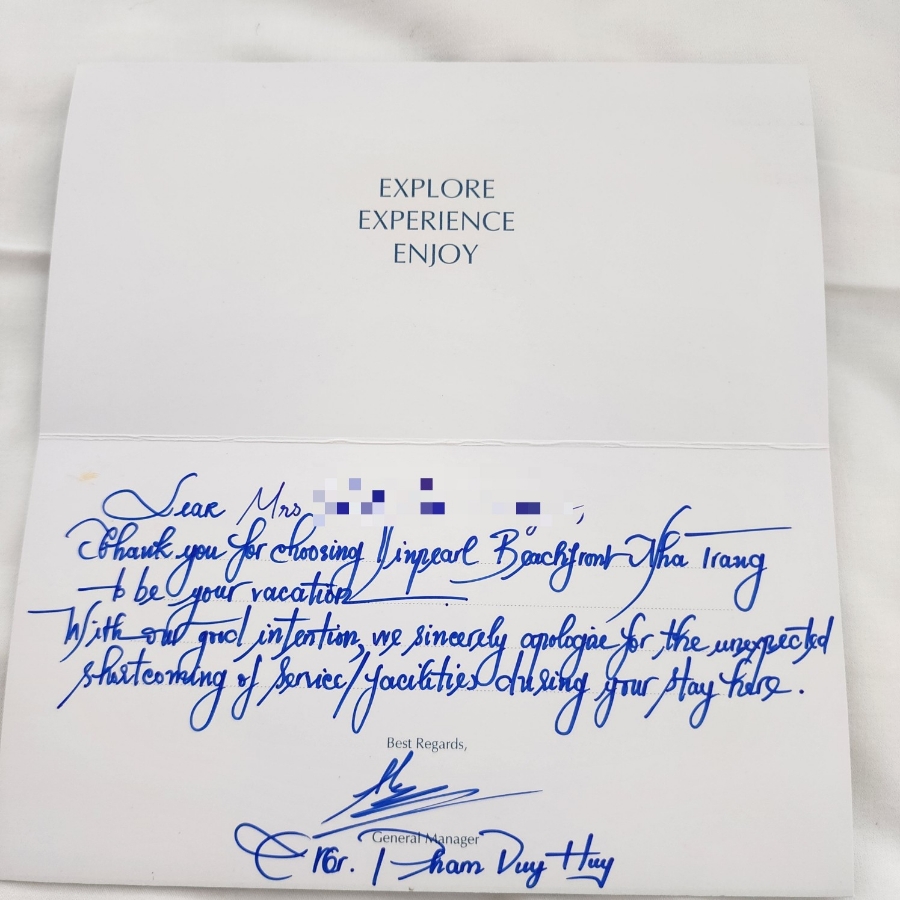 EXPLORE
EXPERIENCE
ENJOY
Dear Mrs
Thank you for choosing Vinpearl Beachfront Nha Trang
to be your vacation
With our good intention, we sincerely apologize for the unexpected
shortcoming of service/facilities during your stay here.
Best Regards,
General Manager
Mr. Pham Duy Huy